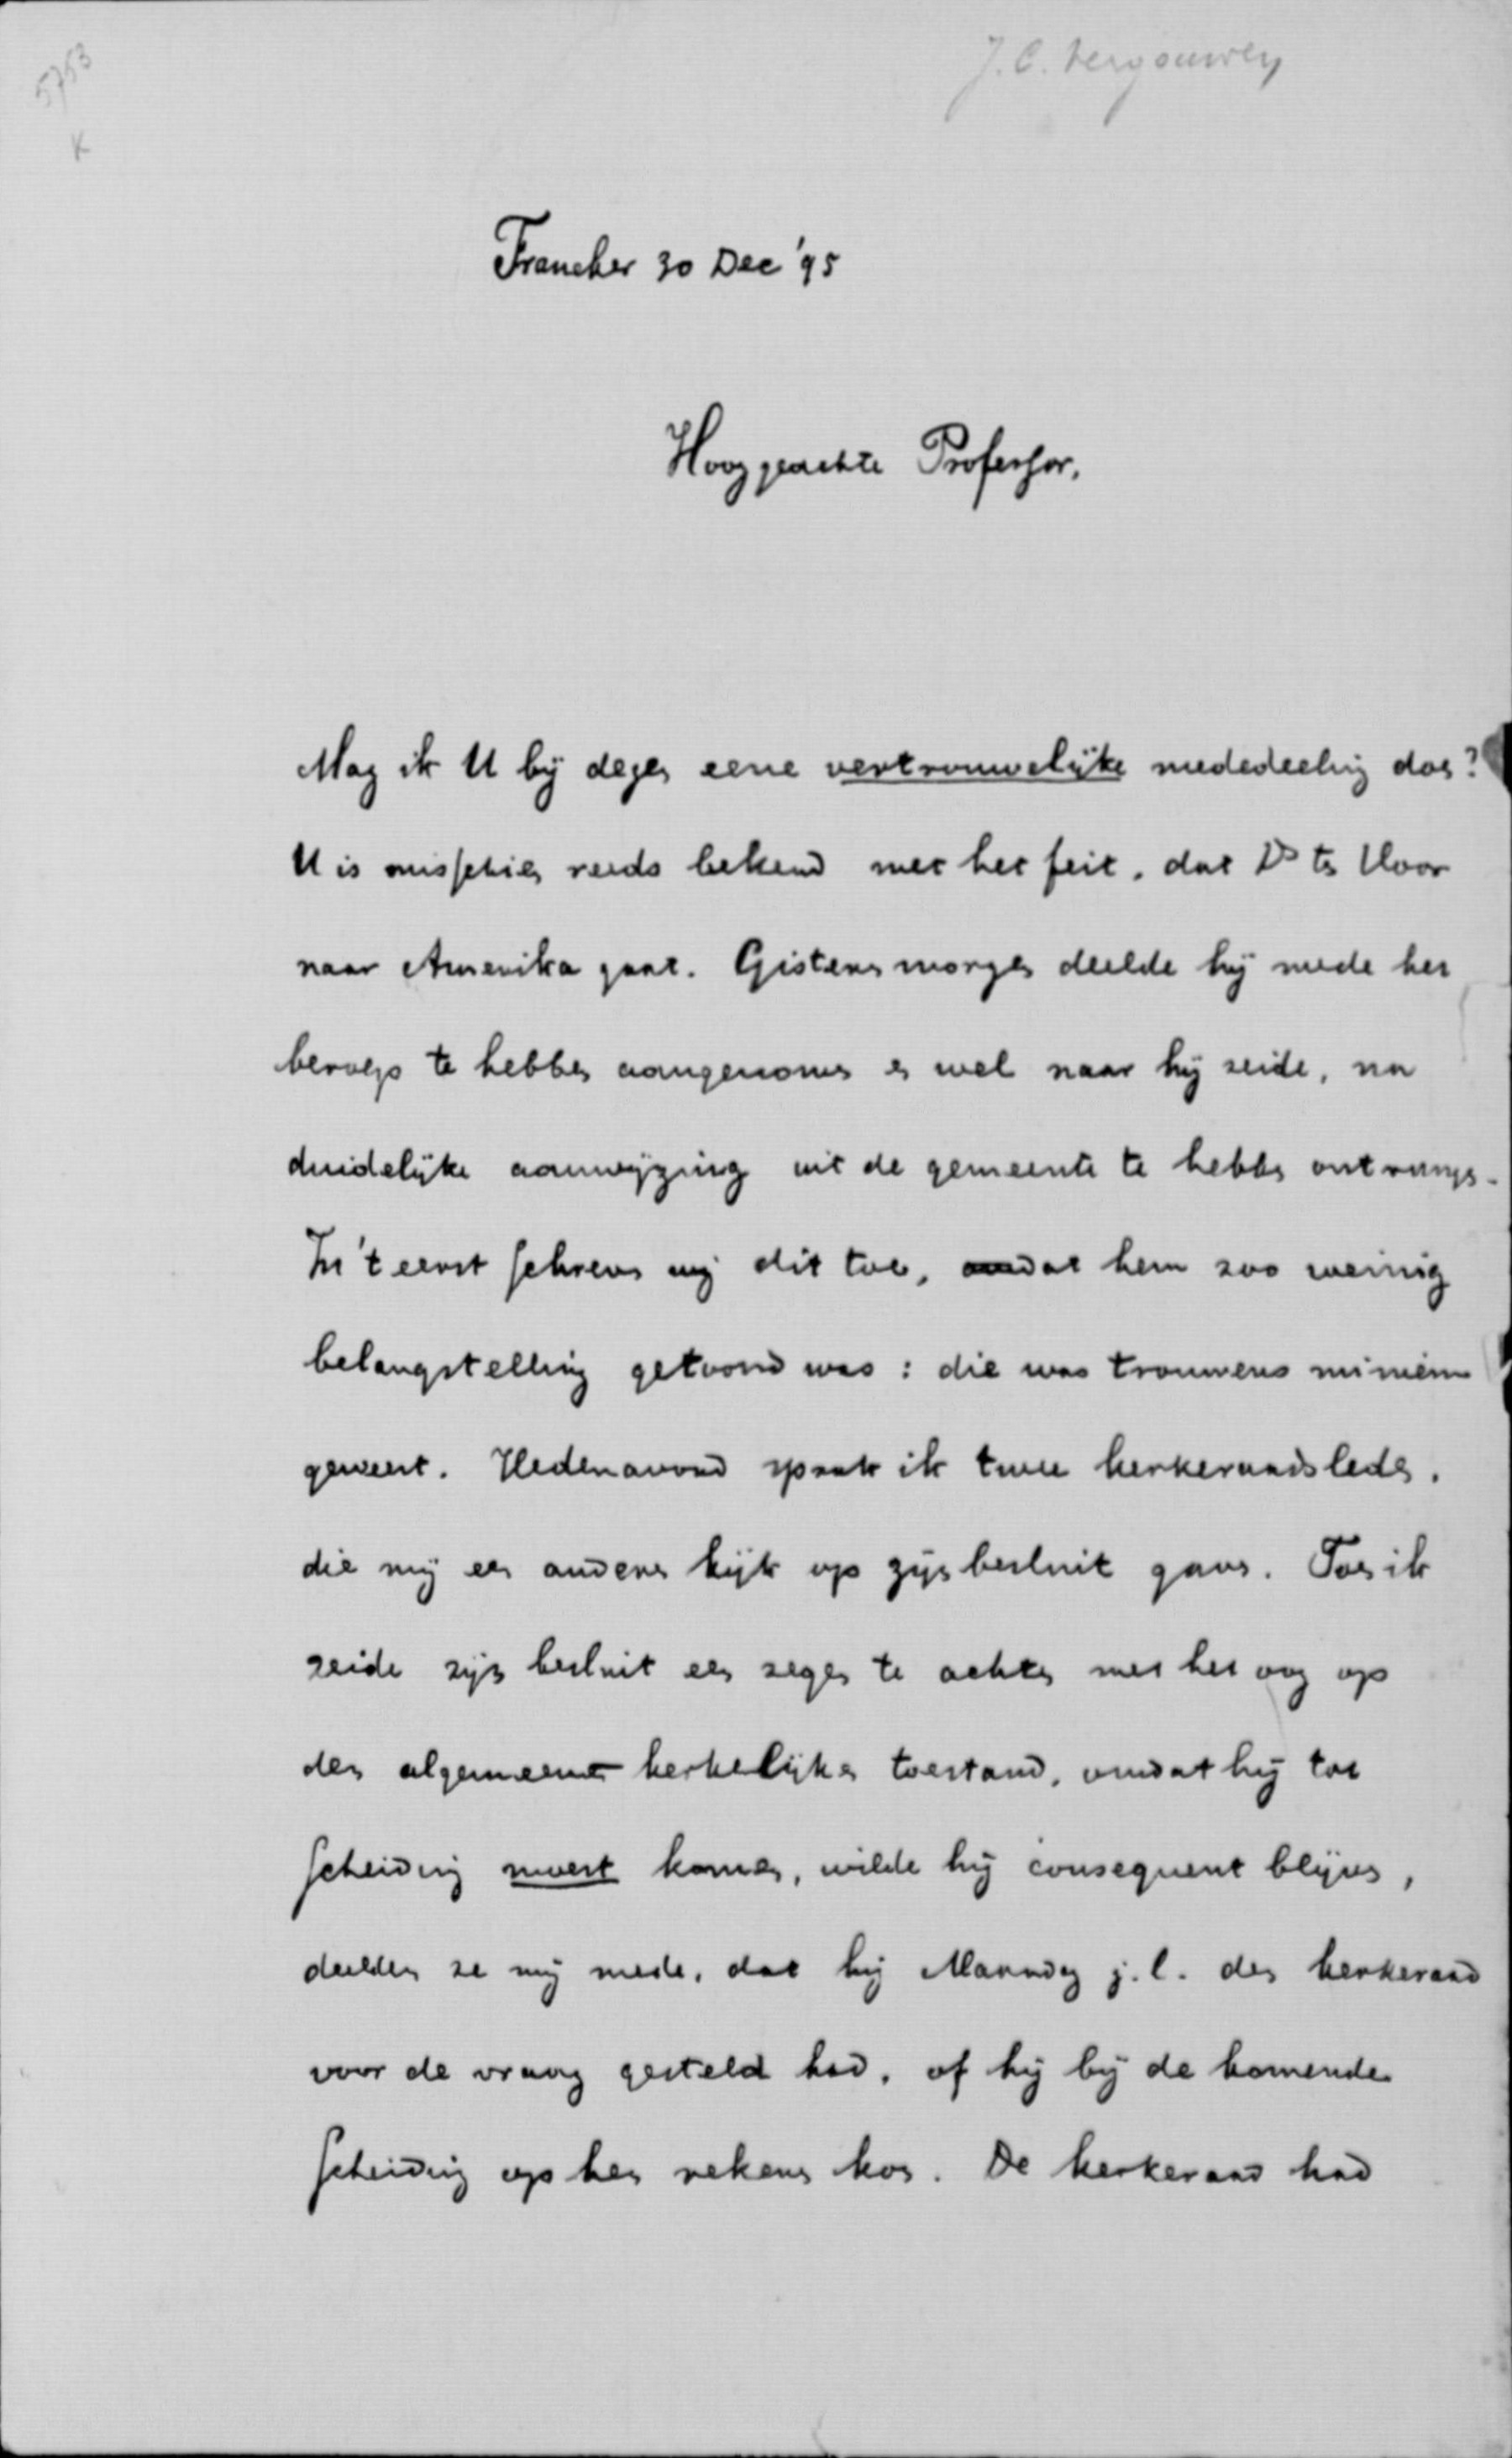 5753
K
J. C. Vergouwen
Franeker 30 Dec '95
Hooggeachte Professor,
Mag ik U bij dezen eene vertrouwelijke mededeeling doen?
U is misschien reeds bekend met het feit, dat Ds ten Hoor
naar Amerika gaat. Gisteren morgen deelde hij mede het
beroep te hebben aangenomen en wel naar hij zeide, na
duidelijke aanwijzing uit de gemeente te hebben ontvangen.
In 't eerst schreven wij dit toe, omdat hem zoo weinig
belangstelling getoond was: die was trouwens miniem
geweest. Hedenavond sprak ik twee kerkeraadsleden,
die mij een anderen kijk op zijn besluit gaven. Toen ik
zeide zijn besluit een zegen te achten met het oog op
den algemeenen kerkelijken toestand, omdat hij tot
scheiding moest komen, wilde hij consequent blijven,
deelden ze mij mede, dat hij Maandag j.l. den kerkeraad
voor de vraag gesteld had, of hij bij de komende
scheiding op hen rekenen kon. De kerkeraad had